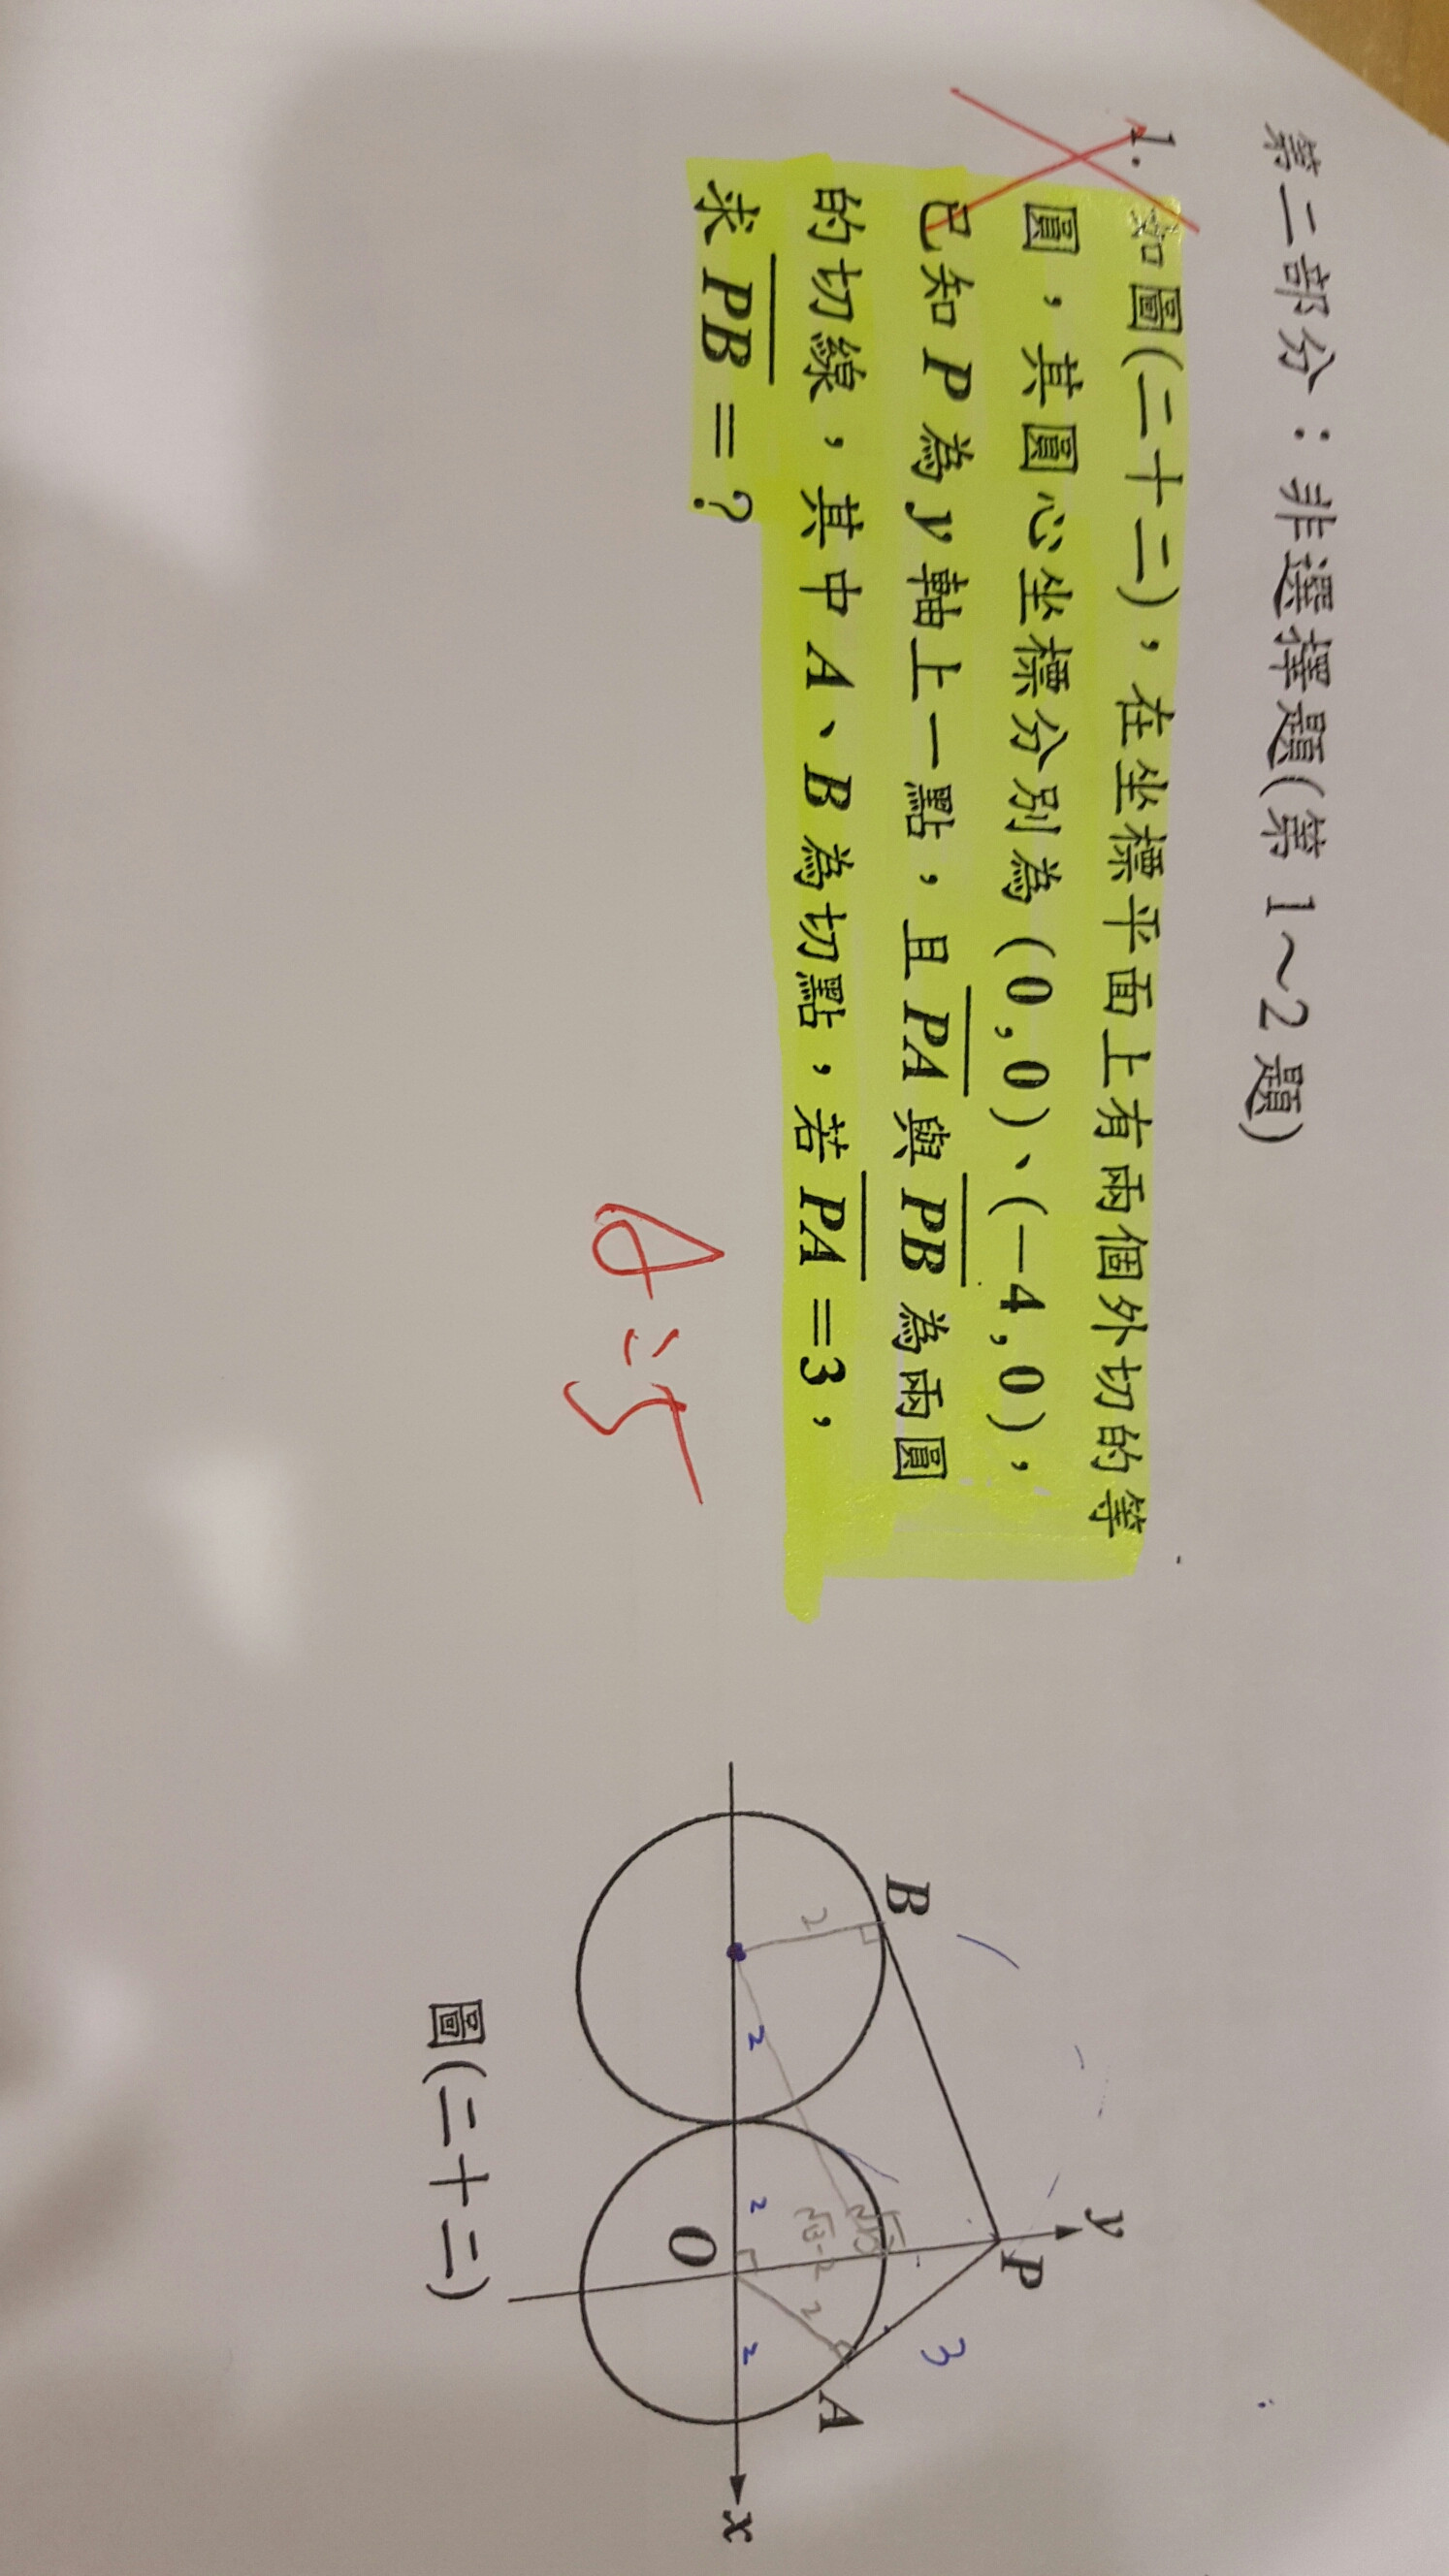 第二部分：非選擇題(第 1～2 題)
1. 如圖(二十二)，在坐標平面上有兩個外切的等
圓，其圓心坐標分別為 (0,0)、(−4,0)，
已知 P 為 y 軸上一點，且 PA 與 PB 為兩圓
的切線，其中 A、B 為切點，若 PA =3，
求 PB = ?
y
P
B
3
2
2
2
√13
√13-2
2
2
A
O
x
圖(二十二)